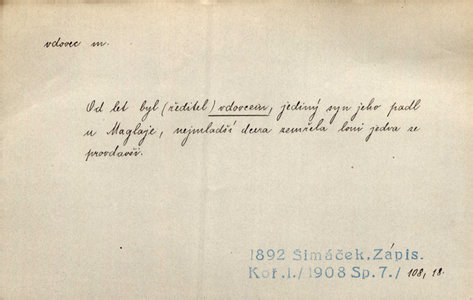 vdovec m.
Od let byl (ředitel) vdovcem, jediný syn jeho padl
u Maglaje, nejmladší dcera zemřela loni jedva se
provdavši.
1892 Šimáček, Zápis.
Koř. I./1908 Sp. 7./ 108, 18.